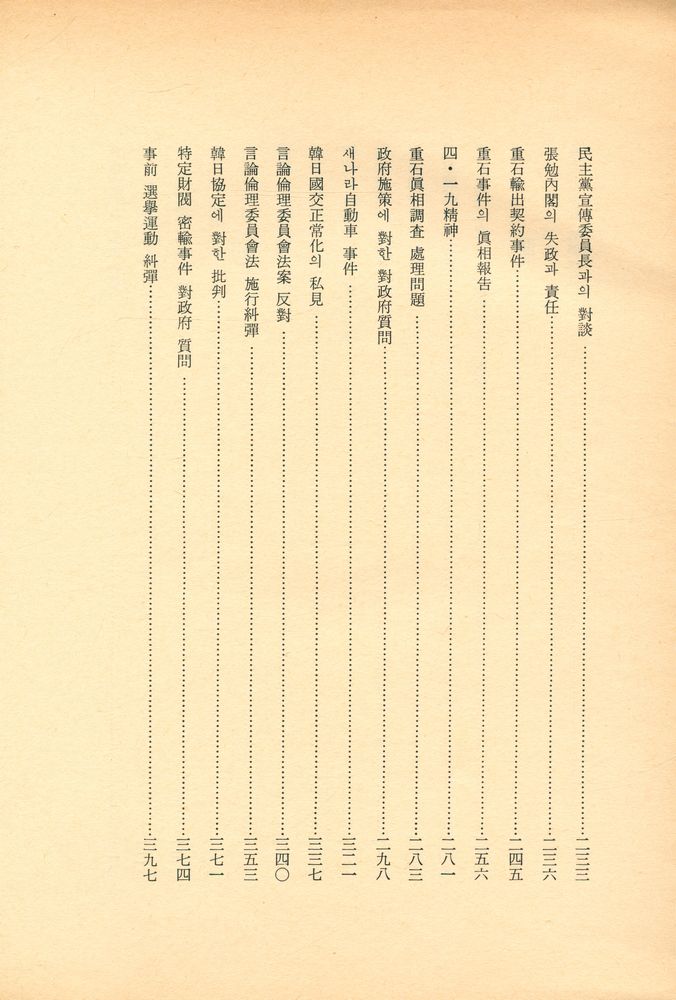 民主黨宣傳委員長과의 對談……二三三
張勉內閣의 失政과 責任……二三六
重石輸出契約事件……二四五
重石事件의 眞相報告……二五六
四·一九精神……二八一
重石眞相調査 處理問題……二八三
政府施策에 對한 對政府質問……二九八
새나라自動車 事件……三二一
韓日國交正常化의 私見……三三七
言論倫理委員會法案 反對……三四〇
言論倫理委員會法 施行糾彈……三五三
韓日協定에 對한 批判……三七一
特定財閥 密輸事件 對政府 質問……三七四
事前 選擧運動 糾彈……三九七